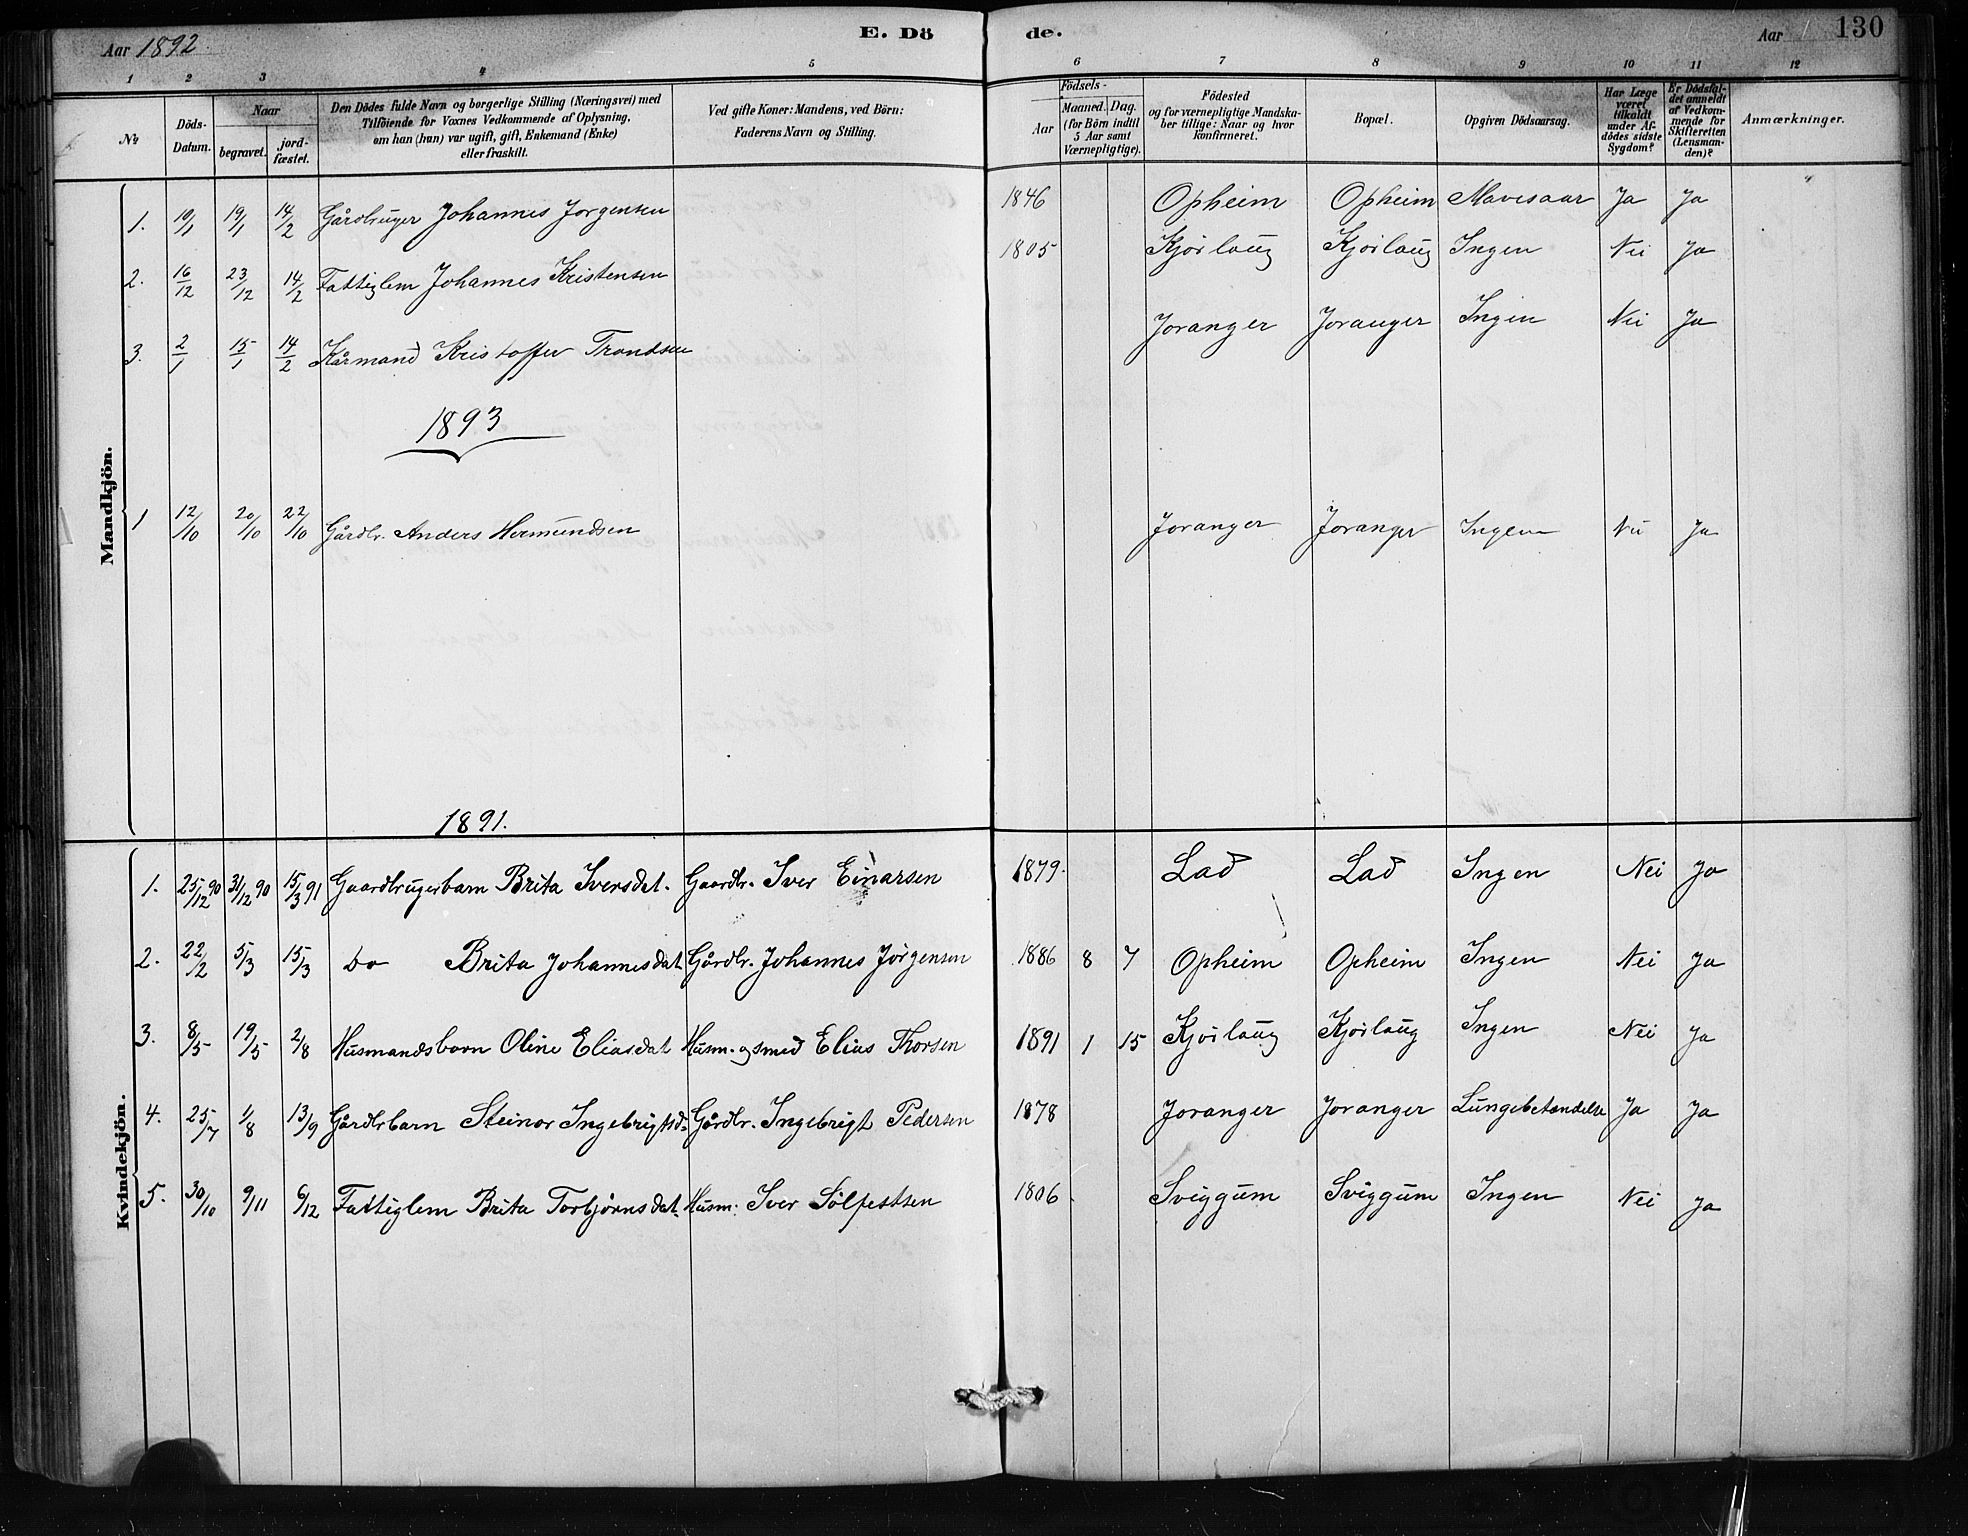 Aar 1892. E. Dö de. Aar 130
1 2 3 4 5 6 7 8 9 10 11 12
№ Döds-Datum. Naar begravet. jord-fæstet. Den Dödes fulde Navn og borgerlige Stilling (Næringsvei) med Tilföiende for Voxnes Vedkommende af Oplysning, om han (hun) var ugift, gift, Enkemand (Enke) eller fraskilt. Ved gifte Koner: Mandens, ved Börn: Faderens Navn og Stilling. Födsels- Aar Maaned. Dag. (for Börn indtil 5 Aar samt Værnepligtige). Födested og for værnepligtige Mandskaber tillige: Naar og hvor konfirmeret. Bopæl. Opgiven Dödsaarsag. Har Læge været tilkaldt under Afdødes sidste Sygdom? Er Dödsfaldet anmeldt af Vedkommende for Skifteretten (Lensmanden)? Anmærkninger.
Mandkjön.
1. 10/1 19/1 14/2 Gårdbruger Johannes Jorgensen 1846 Opheim Opheim Mavesaar Ja Ja
2. 16/12 23/12 14/2 Fattiglem Johannes Kristensen 1805 Kjörlaug Kjörlaug Ingen Nei Ja
3. 2/1 15/1 14/2 Kårmand Kristoffer Trondsen Joranger Joranger Ingen Nei Ja
1893
1 12/10 20/10 22/10 Gårdbr. Anders Hermundsen Joranger Joranger Ingen Nei Ja
1891.
Kvindekjön.
1. 25/12 90 31/12 90 15/3 91 Gaardbrugerbarn Brita Iversdat. Gaardbr. Iver Einarsen 1879. Lad Lad Ingen Nei Ja
2. 22/2 5/3 15/3 Do Brita Johannesdat Gårdbr. Johannes Jörgensen 1886 8 7 Opheim Opheim Ingen Nei Ja
3. 8/5 19/5 2/8 Husmandsbarn Oline Eliasdat Husm. og smed Elias Thorsen 1891 1 15 Kjörlaug Kjörlaug Ingen Nei Ja
4. 25/7 1/8 13/9 Gårdbrbarn Steinor Ingebrigtsd. Gårdbr. Ingebrigt Pedersen 1878 Joranger Joranger Lungebetændelse Ja Ja
5. 30/10 9/11 6/12 Fattiglem Brita Torbjørnsdat. Husm. Iver Sölfestsen 1806. Sviggum Sviggum Ingen Nei Ja